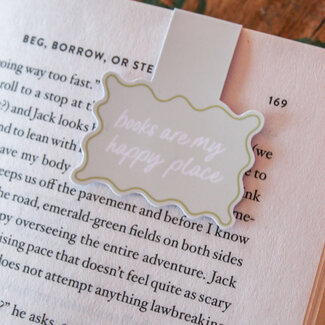 BEG, BORROW, OR STE
169
oing way too fast."
roll to a stop at t
?) and Jack looks (we
and to lean with
ave my body
eeps us off the pavement and before I know
the road, emerald-green fields on both sides
py overseeing the entire adventure. Jack
ising pace that doesn't feel quite as scary
does not attempt anything lawbreaking
?" he asks,
books are my
happy place